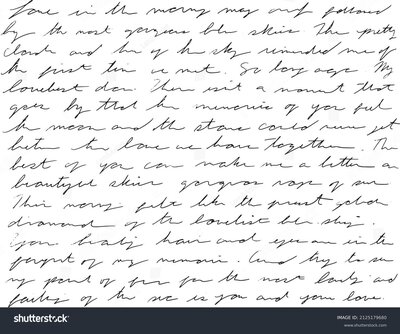 Love in the morning may and followed
by the most gorgeous blue skies. The pretty
clouds and the of the sky reminded me of
the first time we met. So long ago. My
loveliest dove. There isn't a moment that
goes by that the memories of you feel
the moon and the stars could never get
better the love we have together. The
best of you can make me a better
beautiful skies gorgeous rays of sun
This morning felt like the
dreamed of the loveliest blue sky.
Your lovely hair and eyes are in the
of my memories. And try to see
my point of for the most lovely and
of the is you and your love.
shutterstock
IMAGE ID: 2125179680
www.shutterstock.com